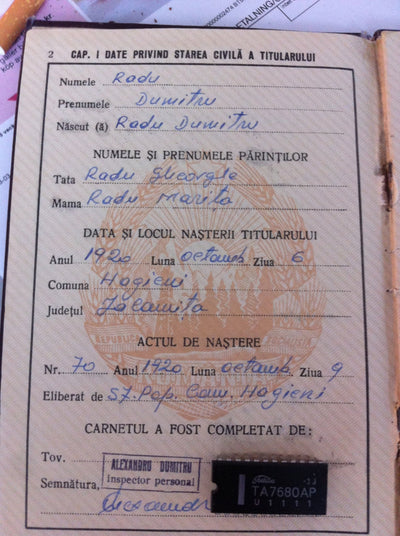 2 CAP. I DATE PRIVIND STAREA CIVILĂ A TITULARULUI
Numele Radu
Prenumele Dumitru
Născut (ă) Radu Dumitru
NUMELE ȘI PRENUMELE PĂRINȚILOR
Tata Radu Gheorghe
Mama Radu Marița
DATA ȘI LOCUL NAȘTERII TITULARULUI
Anul 1920 Luna octomb Ziua 6
Comuna Hagieni
Județul Jalomița
ACTUL DE NAȘTERE
Nr. 70 Anul 1920 Luna octomb Ziua 9
Eliberat de Sf. Pop. Com. Hagieni
CARNETUL A FOST COMPLETAT DE:
Tov. ALEXANDRU DUMITRU
inspector personal
Semnătura,
TA7680AP
U1111